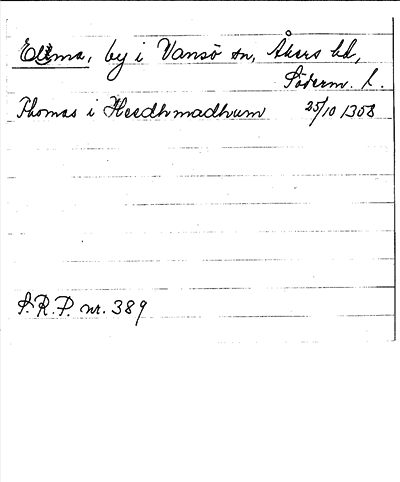 by i Vansö sn, Åkers hd,
Söderm. l.
Thomas i Heedhmadhum 25/10 1358
S.R.P. nr. 389